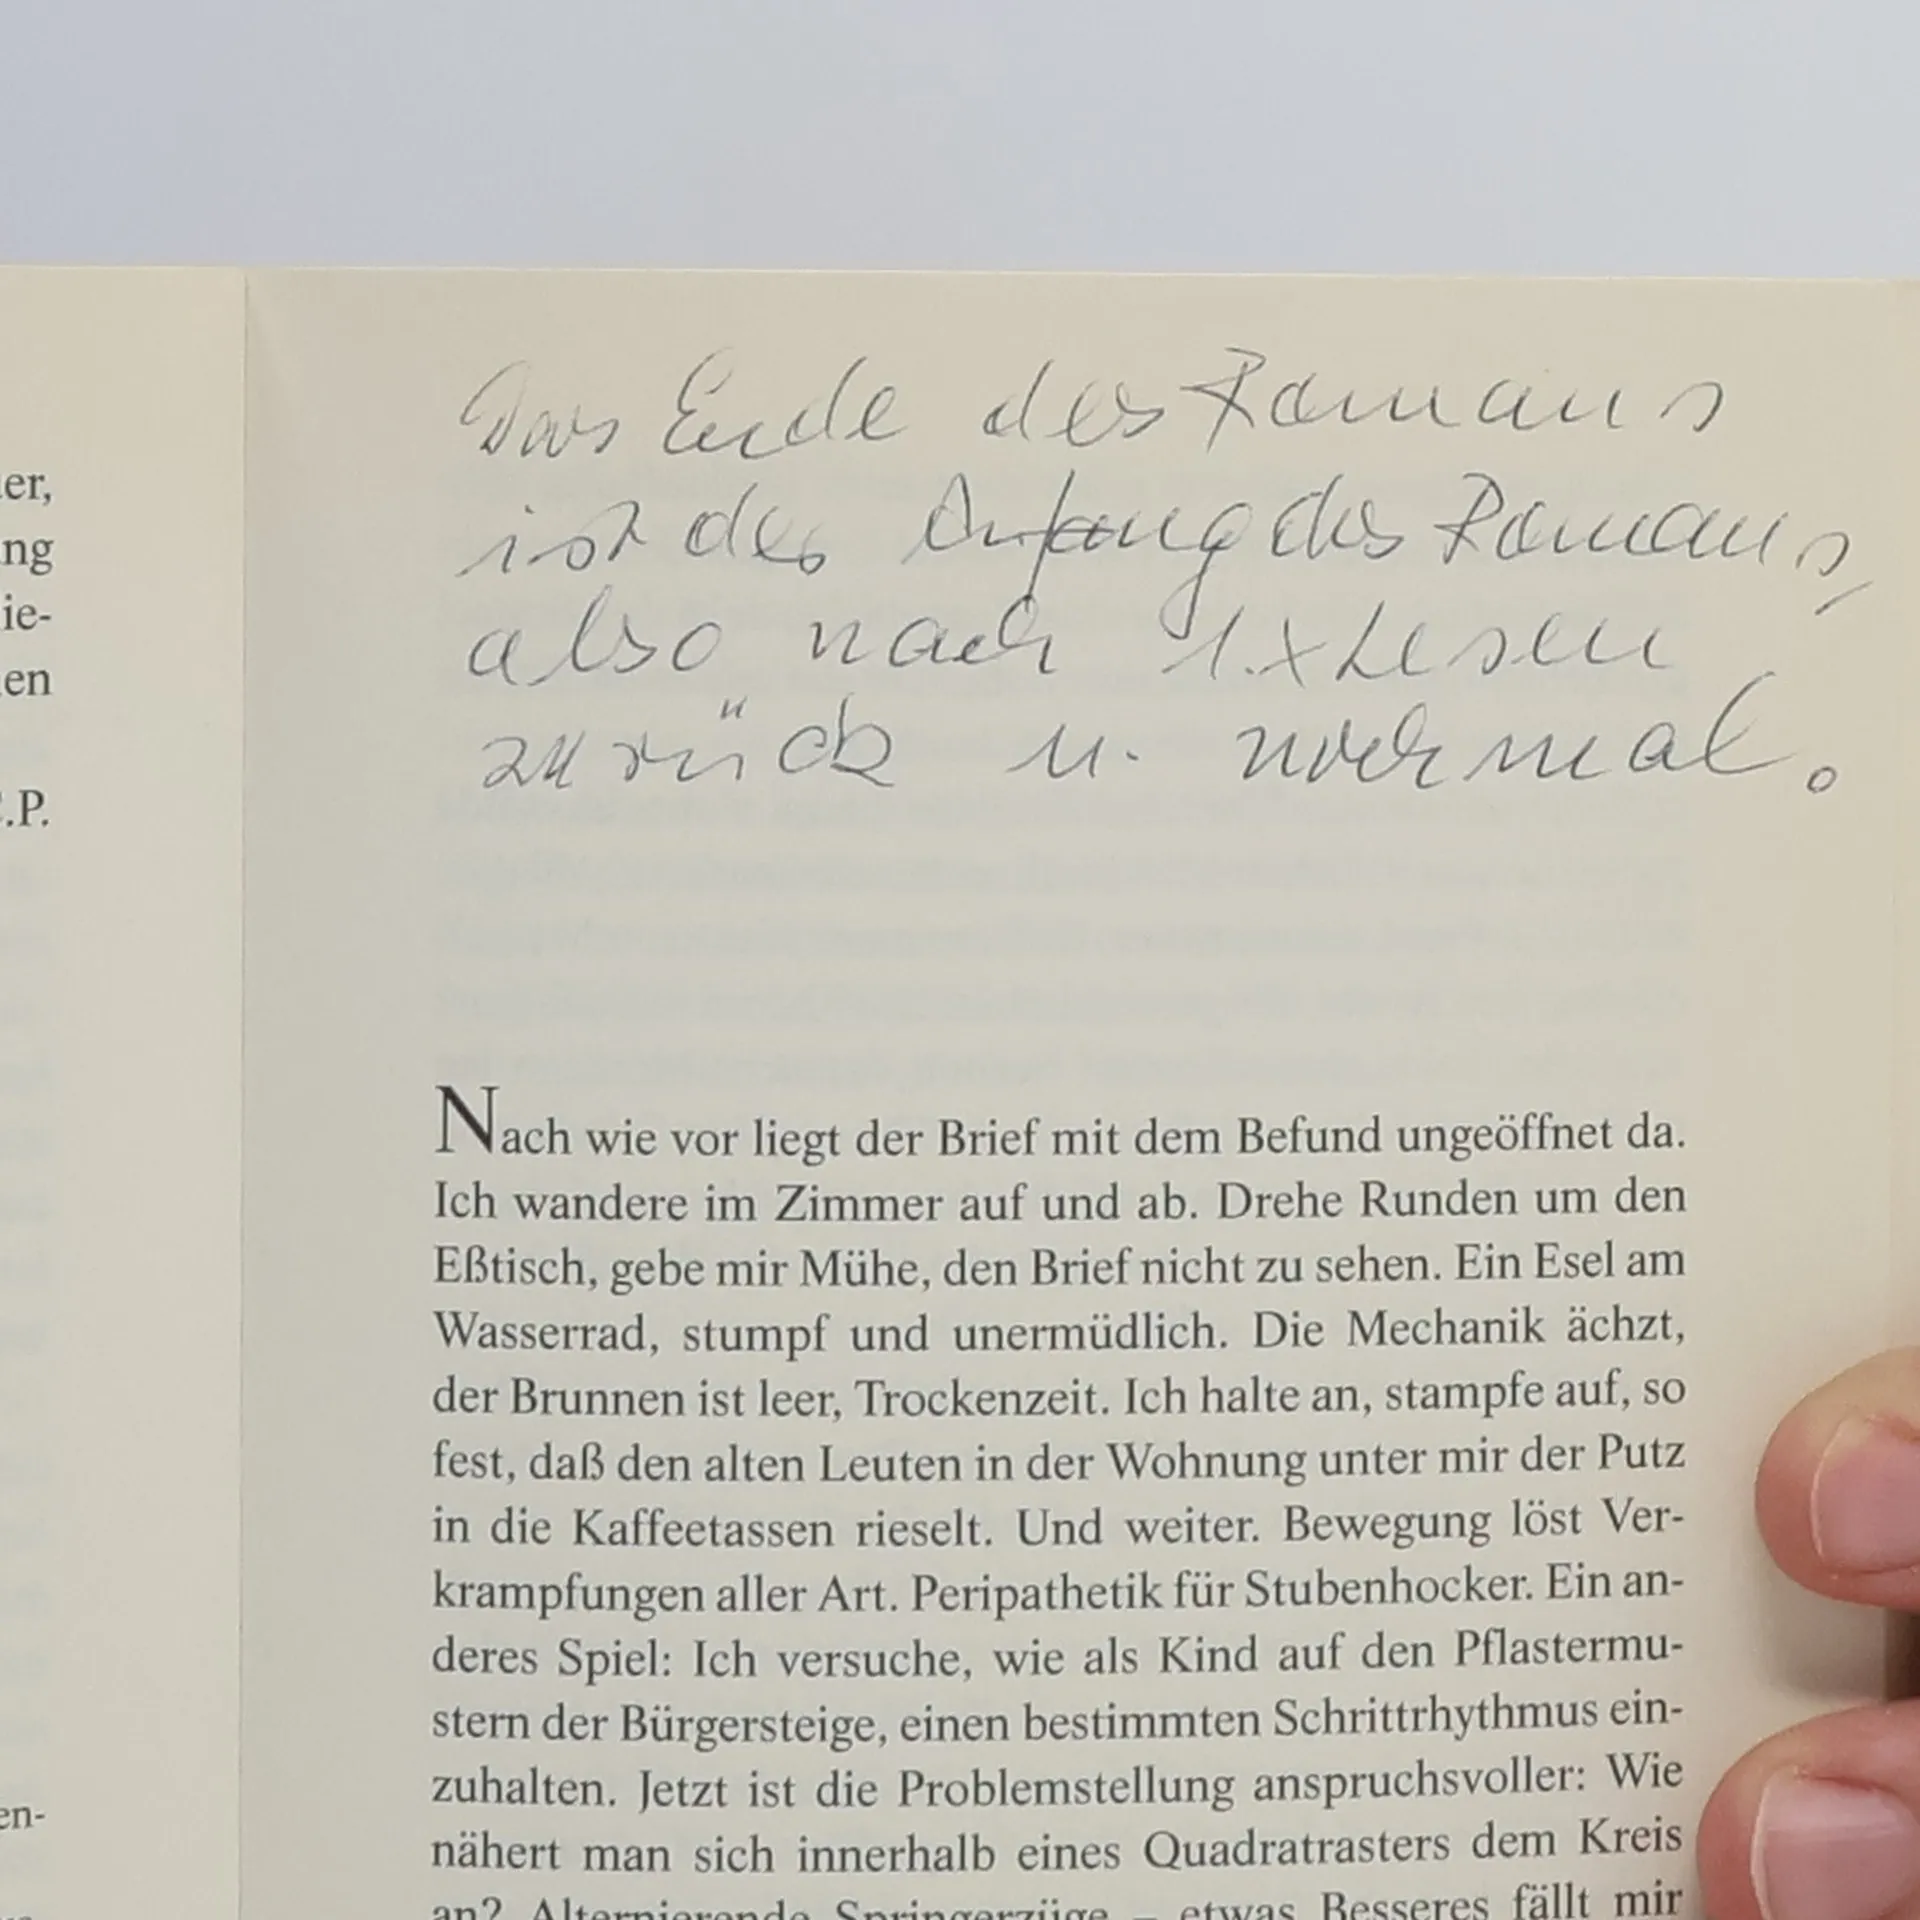 er,
ng
ie-
en
.P.
en-
Das Ende des Romans
ist der Anfang des Romans,
also nach 1.x Lesen
zurück u. nochmal.
Nach wie vor liegt der Brief mit dem Befund ungeöffnet da.
Ich wandere im Zimmer auf und ab. Drehe Runden um den
Eßtisch, gebe mir Mühe, den Brief nicht zu sehen. Ein Esel am
Wasserrad, stumpf und unermüdlich. Die Mechanik ächzt,
der Brunnen ist leer, Trockenzeit. Ich halte an, stampfe auf, so
fest, daß den alten Leuten in der Wohnung unter mir der Putz
in die Kaffeetassen rieselt. Und weiter. Bewegung löst Ver-
krampfungen aller Art. Peripathetik für Stubenhocker. Ein an-
deres Spiel: Ich versuche, wie als Kind auf den Pflastermu-
stern der Bürgersteige, einen bestimmten Schrittrhythmus ein-
zuhalten. Jetzt ist die Problemstellung anspruchsvoller: Wie
nähert man sich innerhalb eines Quadratrasters dem Kreis
an? Alternierende Springerzüge – etwas Besseres fällt mir